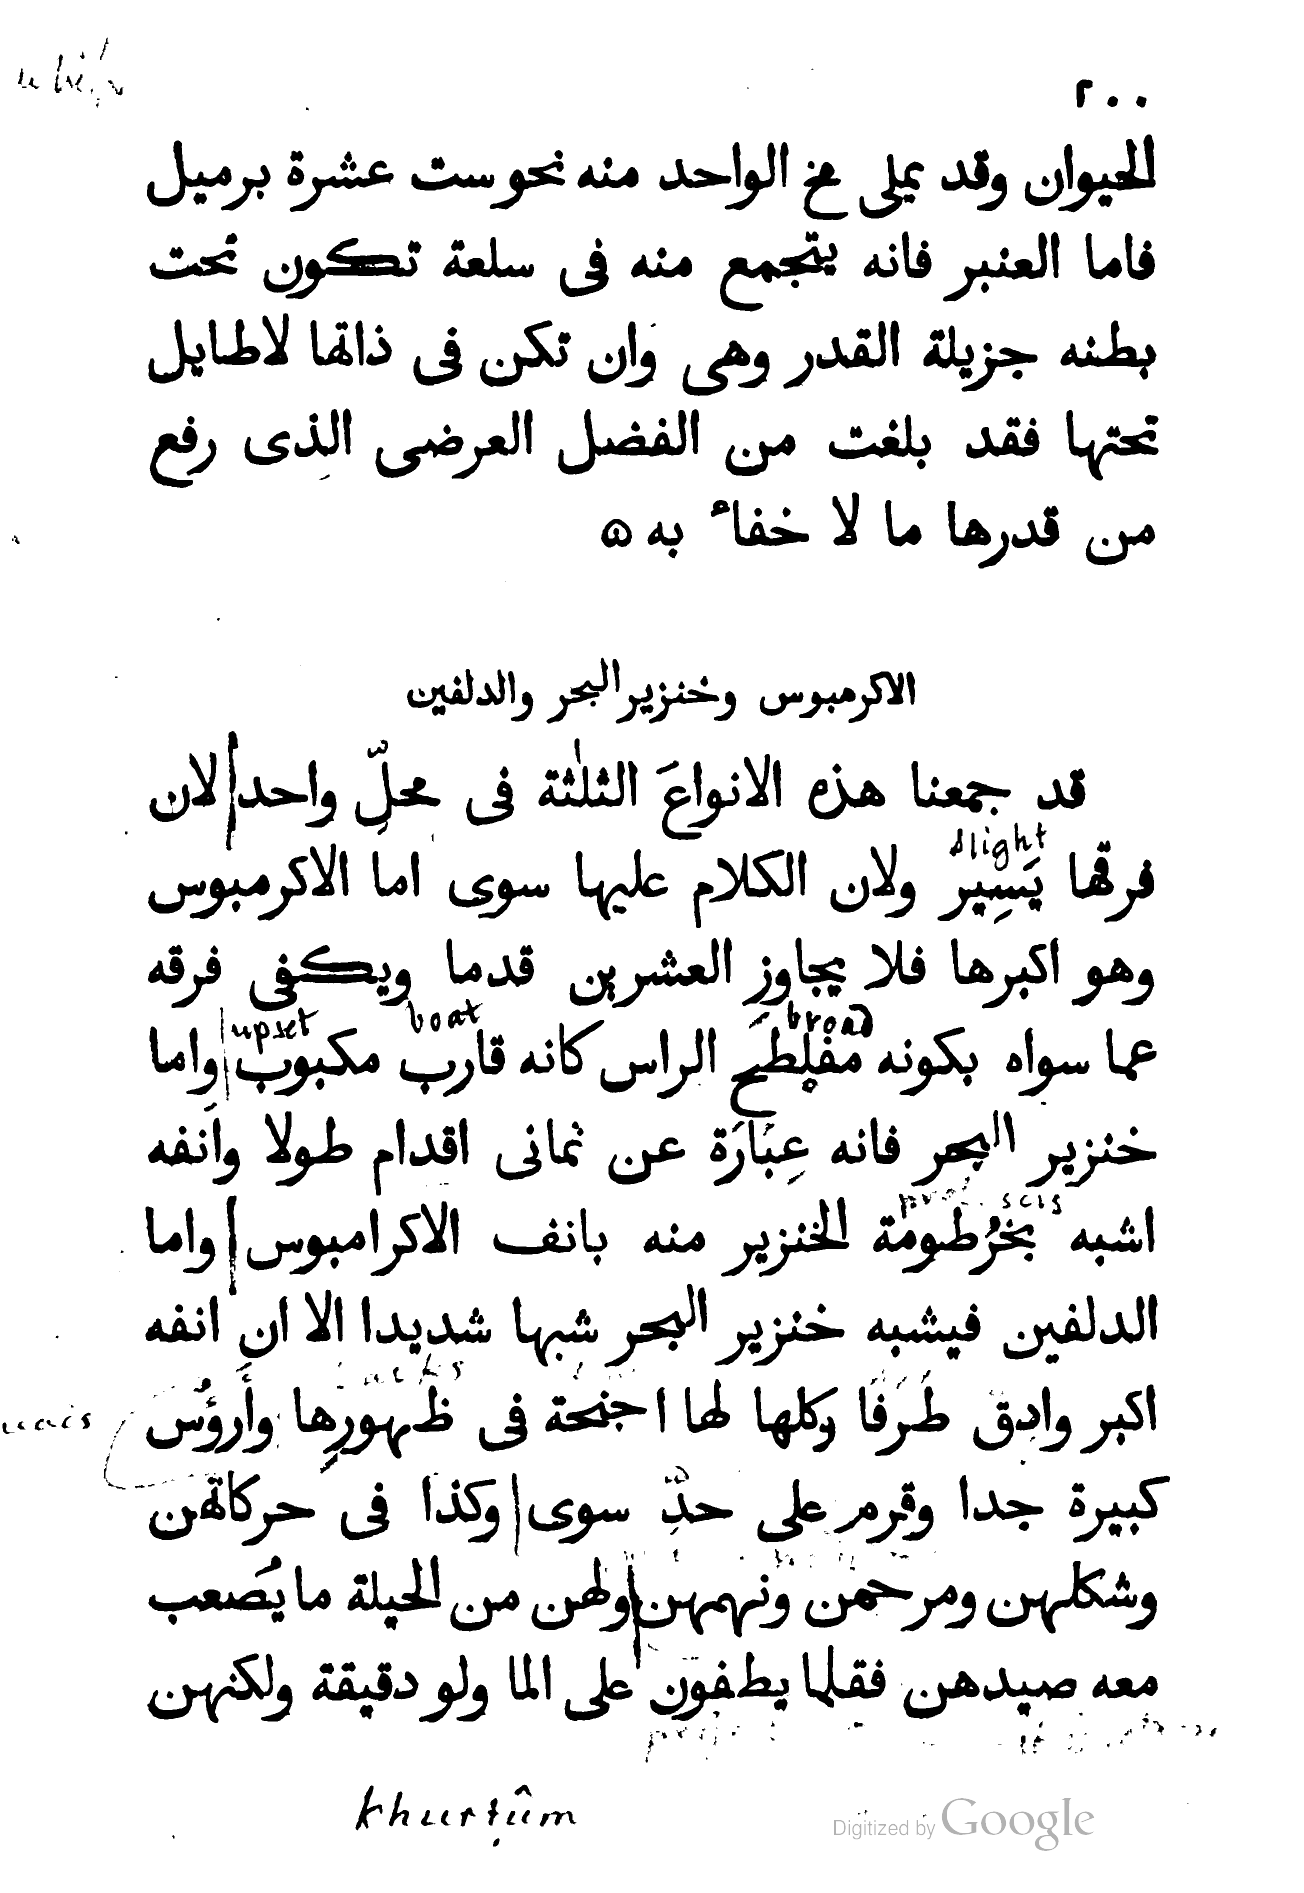 ٢٠٠
الحيوان وقد يملى مخ الواحد منه نحو ست عشرة برميل
فاما العنبر فانه يتجمع منه فى سلعة تكون تحت
بطنه جزيلة القدر وهى وان تكن فى ذاتها لاطايل
تحتها فقد بلغت من الفضل العرضى الذى رفع
من قدرها ما لا خفاء به ۵
الاكرمبوس وخنزير البحر والدلفين
قد جمعنا هذه الانواعَ الثلٰثة فى محلِّ واحد لان
slight
فرقها يَسِير ولان الكلام عليها سوى اما الاكرمبوس
وهو اكبرها فلا يجاوز العشرين قدما ويكفى فرقه
broad boat upset
عما سواه بكونه مفلطح الراس كانه قارب مكبوب واما
خنزير البحر فانه عِبَارَة عن ثمانى اقدام طولا وانفه
اشبه بخرُطومة الخنزير منه بانف الاكرامبوس واما
الدلفين فيشبه خنزير البحر شبها شديدا الا ان انفه
اكبر وادق طَرَفًا وكلها لها اجنحة فى ظهورِها وأَروُسَ
كبيرة جدا وقرم على حدِّ سوى وكذا فى حركاتهن
وشكلهن ومرحهن ونهمهن ولهن من الحيلة ما يَصعب
معه صيدهن فقلما يطفون على الما ولو دقيقة ولكنهن
khurṭûm
Digitized by Google